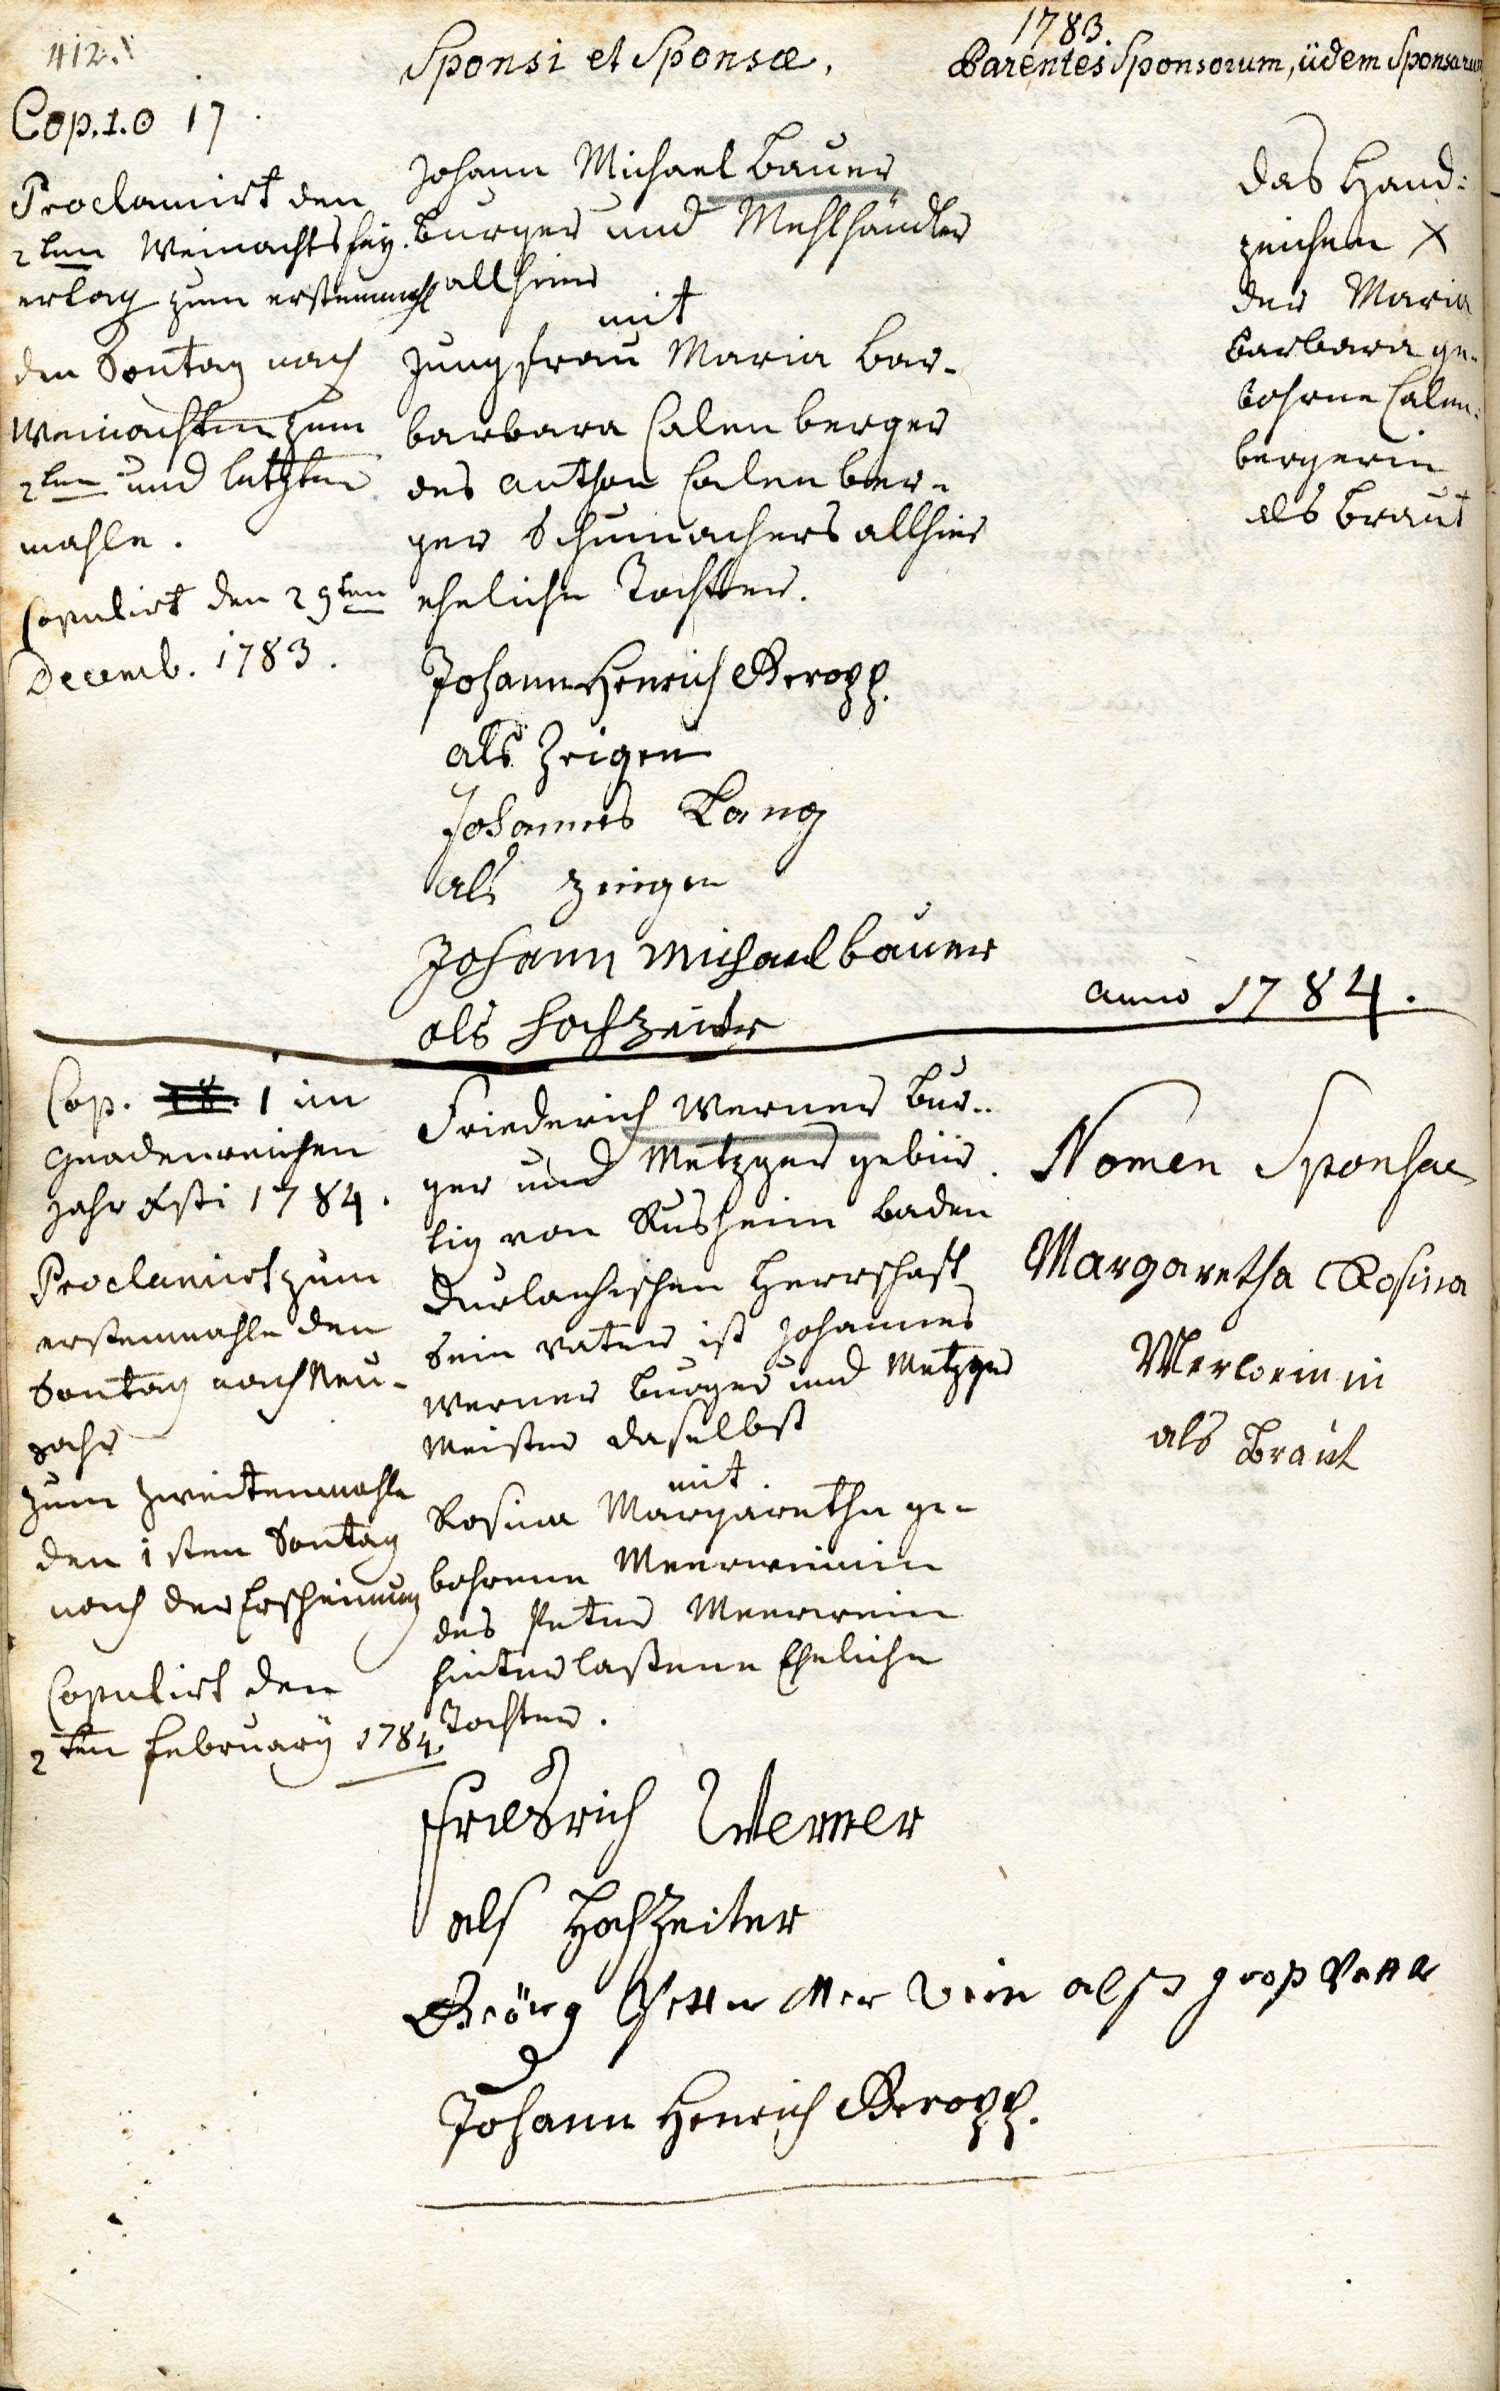 412.
1783.
Sponsi et Sponsæ.
Parentes Sponsorum, iidem Sponsarum
Cop. 1. 17
Proclamirt den
2ten Weinachtsfey.
ertag zum erstenmahl
den Sontag nach
Weinachten zum
2ten und letzten
mahle.
Copulirt den 29ten
Decemb. 1783.
Johann Michael Bauer
Burger und Mehlhändler
allhier
mit
Jungfrau Maria Bar-
barbara Calenberger
des Anthon Calenber-
ger Schumachers allhier
eheliche Tochter.
Johann Henrich Gropp.
als Zeigen
Johannes Lang
als zeigen
Johann Michael bauer
als Hochzeiter
das Hand:
zeichen X
der Maria
Barbara ge-
bohrne Calen:
bergerin
als Braut
anno 1784.
Cop. 18. 1 im
Gnadenreichen
Jahr Xsti 1784.
Proclamirt zum
erstenmahle den
Sontag nach Neu-
jahr
zum zweitenmahle
den 1sten Sontag
nach der Erscheinung
Copulirt den
2ten February 1784.
Friederich Werner Bur-
ger und Metzger gebür.
tig von Rusheim Baden
Durlachischen Herrschaft
Sein Vater ist Johannes
Werner Burger und Metzger
Meister daselbst
mit
Rosina Margaretha ge-
bohrene Meerweinin
des Peter Meerwein
hinterlaßene Eheliche
Tochter.
Friedrich Werner
als Hochzeiter
Geörg Petter Mer Wein alß groß Vatter
Johann Henrich Gropp.
Nomen Sponsae
Margaretha Rosina
Merweinin
als Braut